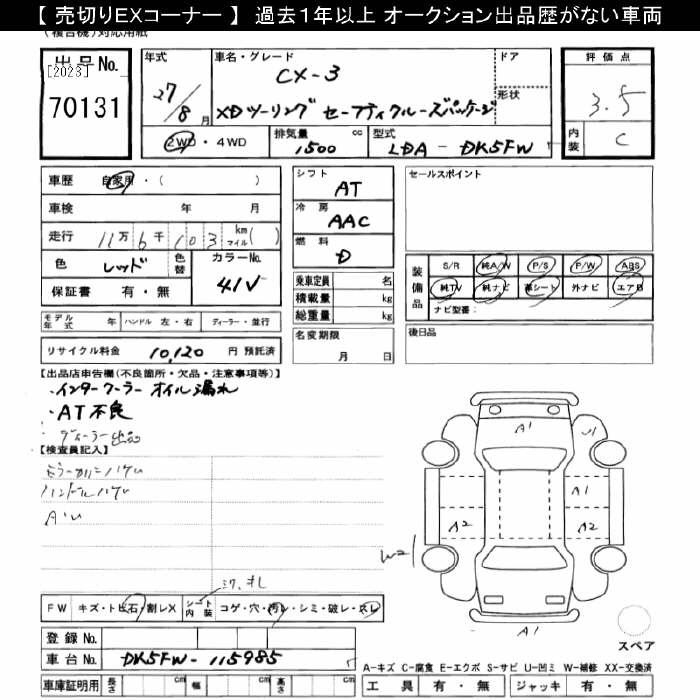 【 売切りEXコーナー 】 過去１年以上 オークション出品歴がない車両
(複合機)対応用紙
出品No. [2023]
70131
年式 27/8 月
車名・グレード CX-3
XDツーリング セーフティクルーズパッケージ
ドア
形状
2WD・4WD
排気量 1500 cc
型式 LDA - DK5FW
評価点 3.5
内装 C
車歴 自家用・( )
車検 年 月
走行 11万6千103 km マイル( )
色 レッド 色替
カラーNo. 41V
保証書 有・無
シフト AT
冷房 AAC
燃料 D
乗車定員 名
積載量 kg
総重量 kg
セールスポイント
装備品 S/R 純A/W P/S P/W ABS
純TV 純ナビ 革シート 外ナビ エアB
ナビ型番:
モデル年式 年 ハンドル 左・右 ディーラー・並行
名変期限 月 日
後日品
リサイクル料金 10,120 円 預託済
【出品店申告欄(不良箇所・欠品・注意事項等)】
・インタークーラー オイル漏れ
・AT不良
・ディーラー出品
【検査員記入】
ハンドルハゲ
A1
A1
A2
A2
W2
A1
FW キズ・トビ石・割レX
シート内装 コゲ・穴・汚レ・シミ・破レ・スレ
登録No.
車台No. DK5FW-115985
車庫証明用 長さ cm 幅 cm 高さ cm
スペア
A-キズ C-腐食 E-エクボ S-サビ U-凹ミ W-補修 XX-交換済
工具 有・無 ジャッキ 有・無